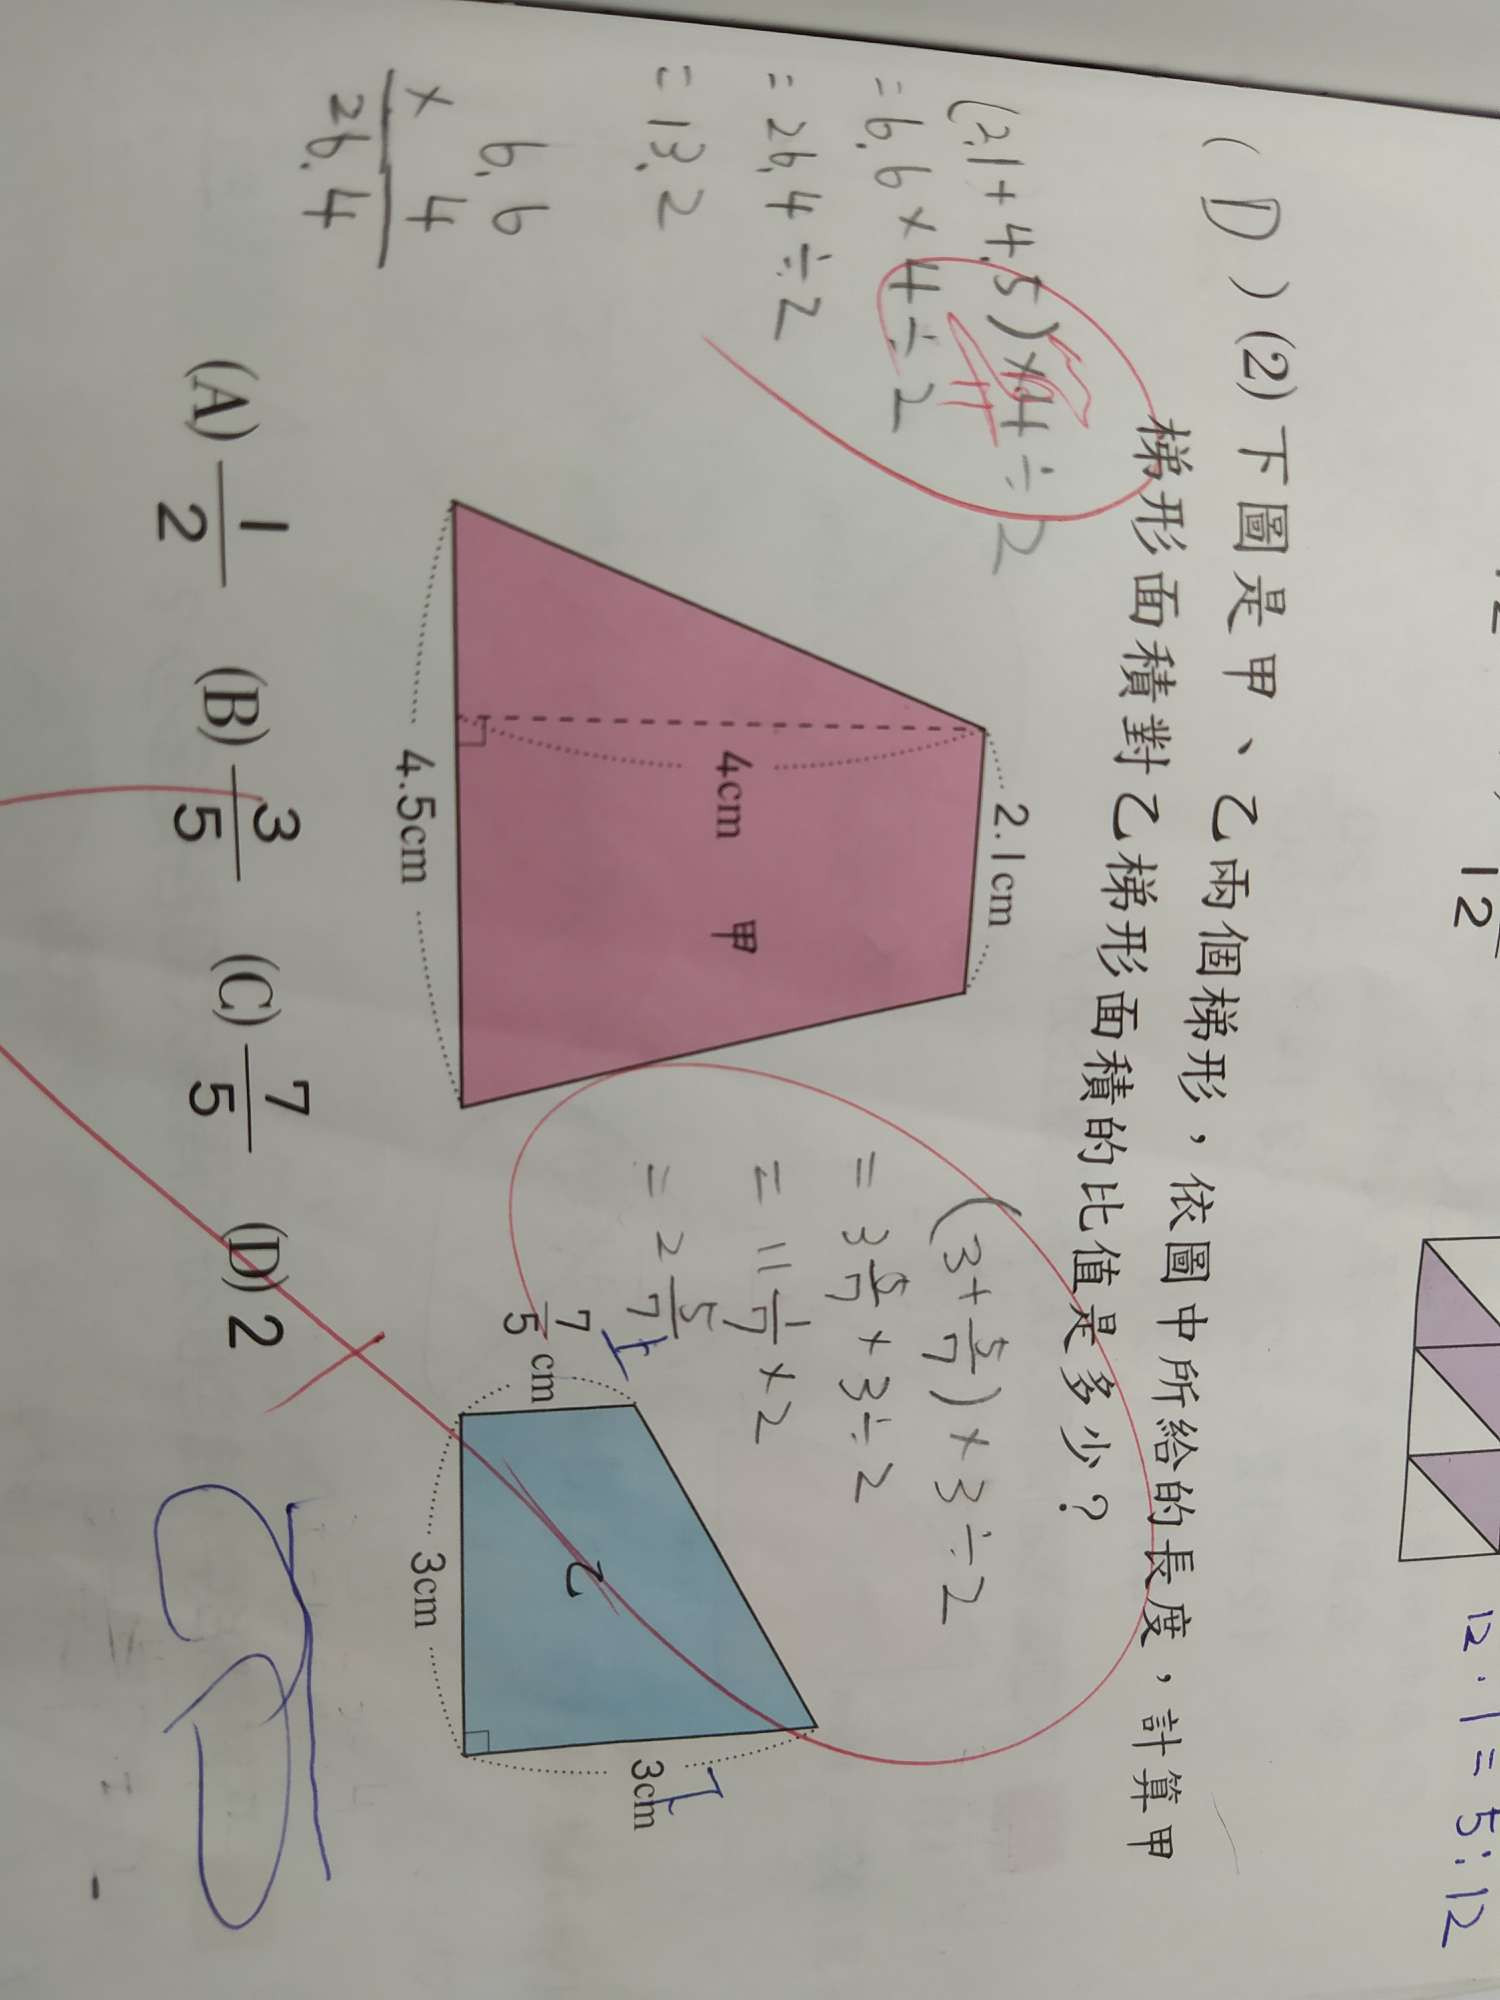 12·1=5:12
12
( D ) (2)下圖是甲、乙兩個梯形,依圖中所給的長度,計算甲
梯形面積對乙梯形面積的比值是多少?
(2.1+4.5)×4÷2
=6.6×4÷2
=26.4÷2
=13.2
6.6
× 4
26.4
2.1cm
4cm
甲
4.5cm
(3+5/7)×3÷2
=3 5/7×3÷2
=11 1/7×2
=2 5/7
7/5 cm
乙
3cm
3cm
(A) 1/2 (B) 3/5 (C) 7/5 (D) 2